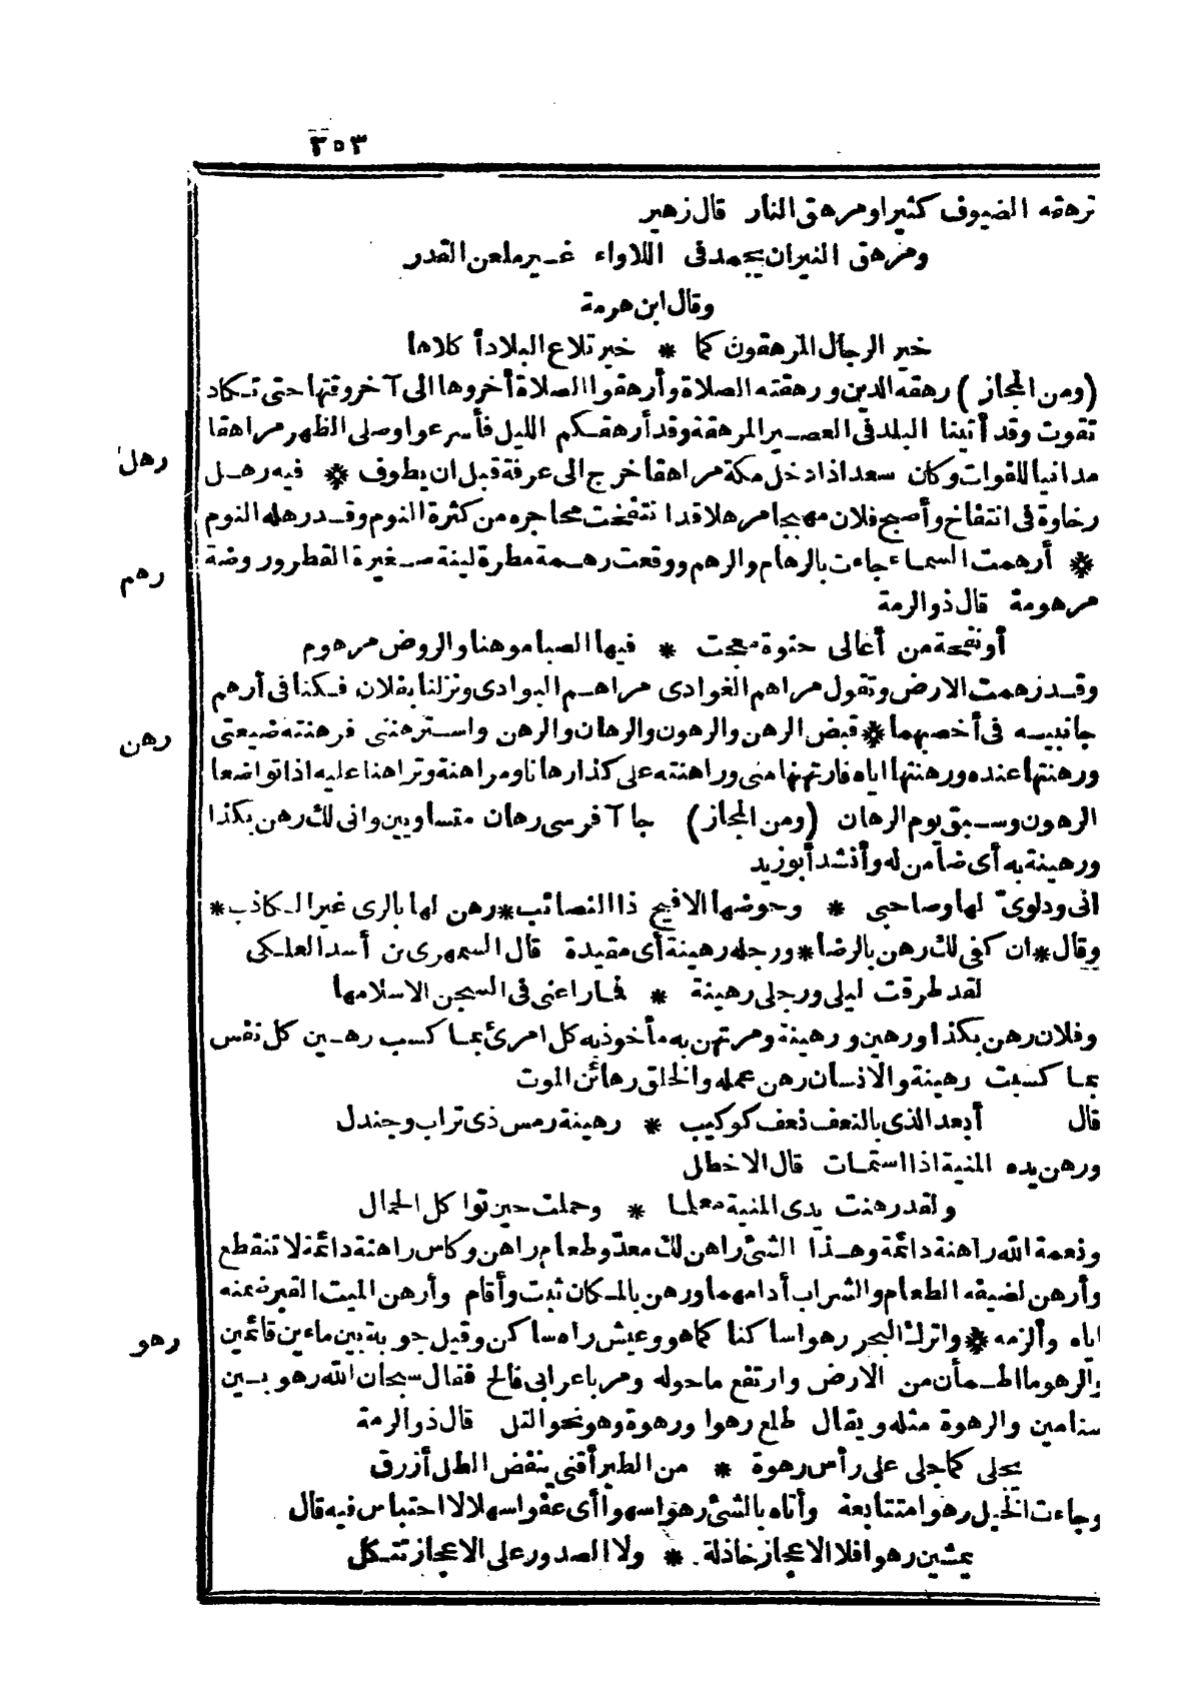 ٢٥٣
ترهقه الضيوف كثيرا ومرهق النار قال زهير
ومرهق النيران يحمد فى اللاواء غير ملعن القدر
وقال ابن هرمة
خير الرجال المرهقون كما * خير تلاع البلاد أكلاها
(ومن المجاز) رهقه الدين ورهقته الصلاة وأرهقوا الصلاة أخروها الى آخر وقتها حتى تكاد
تفوت وقد أتينا البلد فى العصير المرهقة وقد أرهقكم الليل فأسرعوا وصلى الظهر مراهقا
مدانيا للفوات وكان سعد اذا دخل مكة مراهقا خرج الى عرفة قبل ان يطوف * فيه رهل
رهل
رخاوة فى انتفاخ وأصبح فلان مهبجا مرهلا قد انتفخت محاجره من كثرة النوم وقد رهله النوم
* أرهمت السماء جاءت بالرهام والرهم ووقعت رهمة مطرة لينة صغيرة القطر وروضة
رهم
مرهومة قال ذو الرمة
أو نفحة من أعالى حنوة معجت * فيها الصبا موهنا والروض مرهوم
وقد رهمت الارض وتقول مراهم الغوادى مراهم البوادى ونزلنا بفلان فكنا فى أرهم
جانبيه فى أخصبهما * قبض الرهن والرهون والرهان والرهن واسترهننى فرهنته ضيعتى
رهن
ورهنتها عنده ورهنتها اياه فارتهنها منى وراهنته على كذا رهانا ومراهنة وتراهنا عليه اذا تواضعا
الرهون وسبق يوم الرهان (ومن المجاز) جاآ فرسى رهان متساويين وانى لك رهن بكذا
ورهينة به أى ضامن له وأنشد أبو زيد
انى ودلوىّ لها وصاحبى * وحوضها الافيح ذا النصائب * رهن لها بالرى غير الكاذب *
وقال * ان كفى لك رهن بالرضا * ورجله رهينة أى مقيدة قال السمهرى بن أسد العلكى
لقد طرقت ليلى ورجلى رهينة * فما راعنى فى السجن الا سلامها
وفلان رهن بكذا ورهين ورهينة ومرتهن به مأخوذ به كل امرئ بما كسب رهين كل نفس
بما كسبت رهينة والانسان رهن عمله والخلق رهائن الموت
قال أبعد الذى بالنعف نعف كويكب * رهينة رمس ذى تراب وجندل
ورهن يده المنية اذا استمات قال الاخطل
ولقد رهنت يدى المنية معلما * وحملت حين توا كل الحمال
ونعمة الله راهنة دائمة وهذا الشئ راهن لك معدّ وطعام راهن وكاس راهنة دائمة لا تنقطع
وأرهن لضيفه الطعام والشراب أدامهما ورهن بالمكان ثبت وأقام وأرهن الميت القبر ضمنه
اياه وألزمه * واترك البحر رهوا ساكنا كما هو وعيش راه ساكن وقيل جوبة بين ماءين قائمين
رهو
والرهو ما اطمأن من الارض وارتفع ما حوله ومر باعرابى فالج فقال سبحان الله رهو بين
سنامين والرهوة مثله ويقال طلع رهوا ورهوة وهو نحو التل قال ذو الرمة
يجلى كما جلى على رأس رهوة * من الطير أقنى ينفض الطل أزرق
وجاءت الخيل رهوا متتابعة وأتاه بالشئ رهوا سهوا أى عفوا سهلا لا احتباس فيه قال
يمشين رهوا فلا الاعجاز خاذلة * ولا الصدور على الاعجاز تتكل